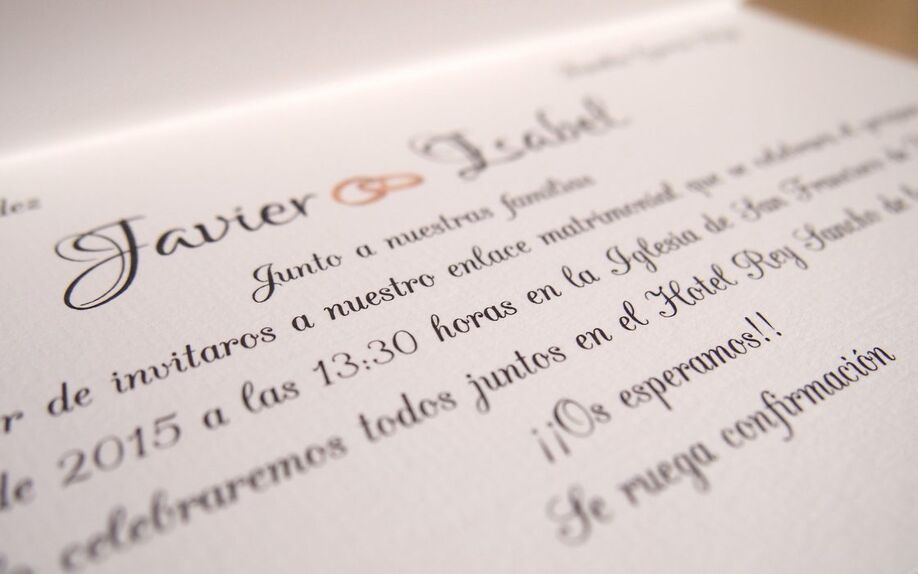 Javier Isabel
Junto a nuestras familias
de invitaros a nuestro enlace matrimonial que se celebrará el
de 2015 a las 13:30 horas en la Iglesia de San Francisco de
celebraremos todos juntos en el Hotel Rey Sancho de
¡¡Os esperamos!!
Se ruega confirmación